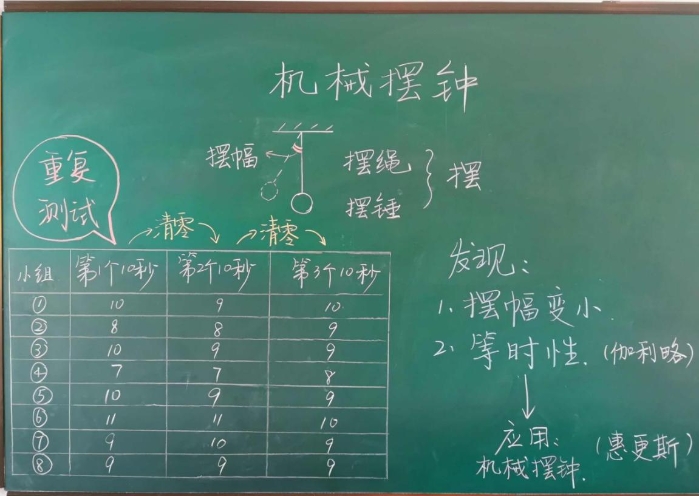 机械摆钟
重复
测试
摆幅
摆绳
摆锤
摆
清零 清零
小组 第1个10秒 第2个10秒 第3个10秒
① 10 9 10
② 8 8 9
③ 10 9 9
④ 7 7 8
⑤ 10 9 9
⑥ 11 11 10
⑦ 9 10 9
⑧ 9 9 9
发现：
1. 摆幅变小.
2. 等时性.（伽利略）
应用：（惠更斯）
机械摆钟.